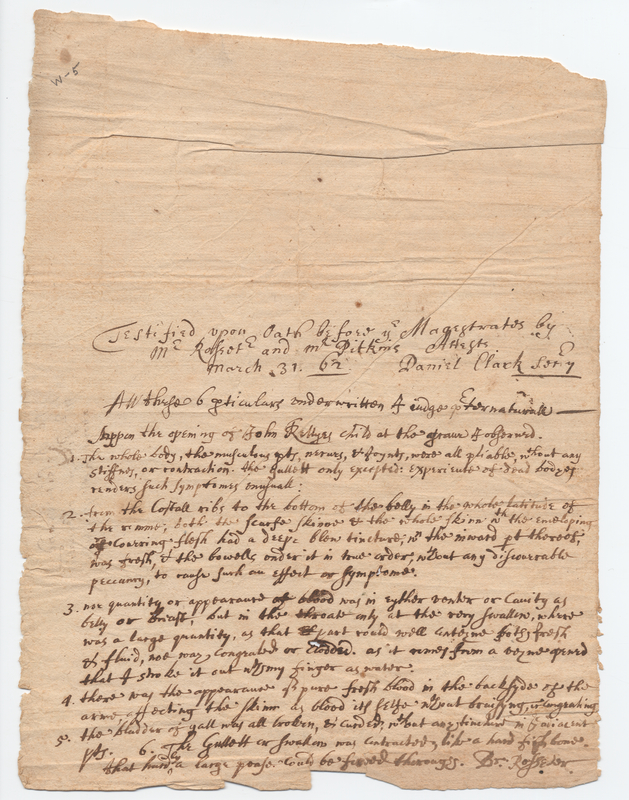 W-5
Testified upon Oath before yᵉ Magestrates by
Mʳ Rosseter and mʳ Pitkins Attests
March 31. 62 Daniel Clark Secʳy
All these 6 pticulars underwritten I iudge pʳternaturall
Vppon the opening of John Kellyes child at the graue I obserued.
1. The whole body, the musculous pts, nerues, & ioynts, were all pliable, wᵗʰout any
stiffnes, or contraction. the gullett only excepted: experience of dead bodyes
renders such symptomes unusuall:
2. from the Costall ribs to the bottom of the belly in the whole latitude of
the wombe, both the scarfe skinne & the whole skin wᵗʰ the enueloping
or Couering flesh had a deepe blew tincture, wⁿ the inward pt thereof,
was fresh, & the bowells under it in true order, wᵗʰout any discouerable
peccancy, to cause such an effect or symptome.
3. noe quantity or appearance of blood was in eyther venter or Cauity as
belly or breast, but in the throate only at the very swallow, where
was a large quantity, as that part could well conteyne both fresh
& fluid, noe way Congealed or Clodded. as it comes from a veyne opened
that I stroke it out wᵗʰ my finger as water.
4. there was the appearance of pure fresh blood in the backsyde of the
arme, affecting the skinn as blood it selfe wᵗʰout bruising, or congealing
5. the bladder of gall was all broken, & curded, wᵗʰout any tincture in yᵉ adiacent
pts. 6. The Gullett or swallow was contracted, like a hard fish bone.
that hardly a large pease. Could be forced through. Br. Rosseter.